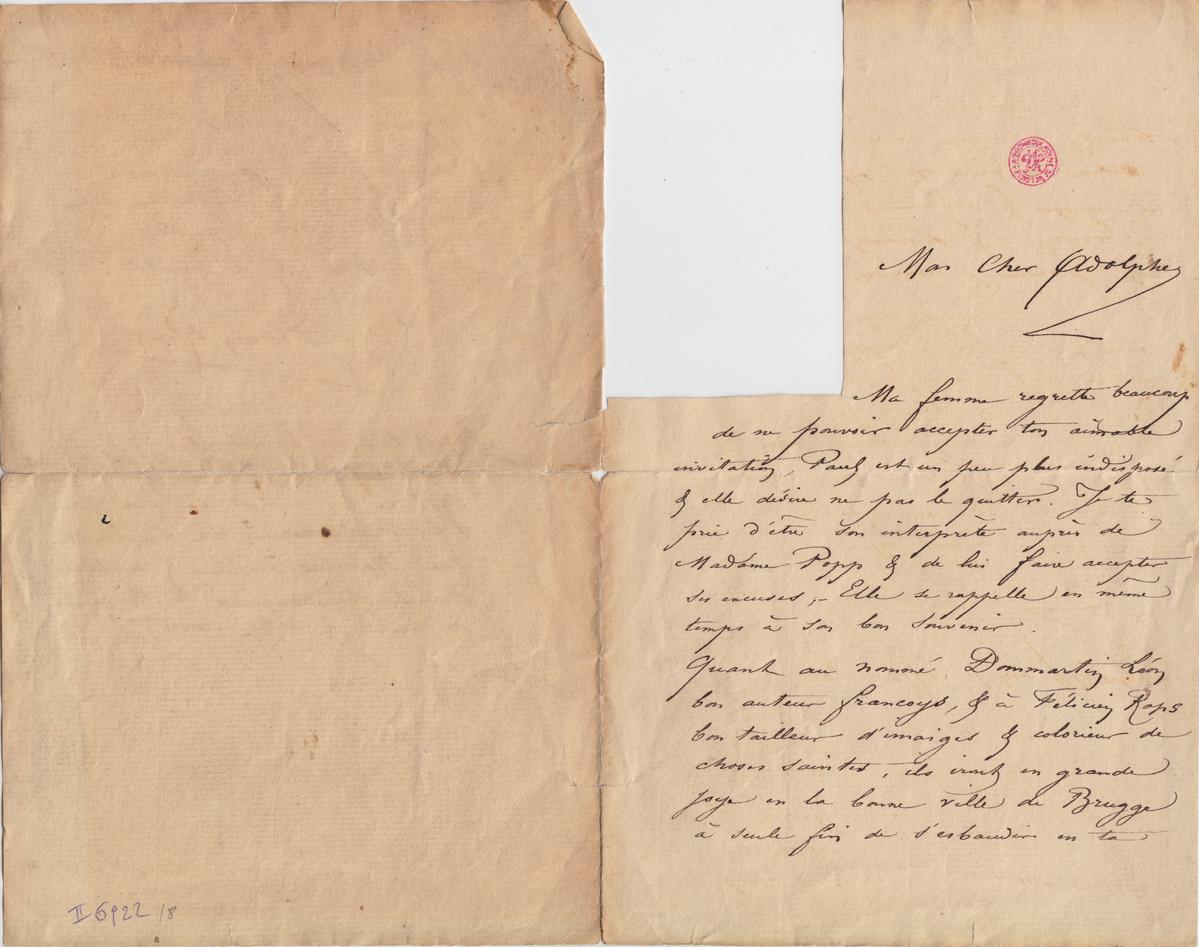 Mon Cher Adolphe
Ma femme regrette beaucoup
de ne pouvoir accepter ton aimable
invitation, Paul est un peu plus indisposé
& elle désire ne pas le quitter. Je te
prie d'être son interprète auprès de
Madame Popp & de lui faire accepter
ses excuses ;- Elle se rappelle en même
temps à son bon souvenir.
Quant au nommé Dommartin Léon
bon auteur francoys, & à Félicien Rops
bon tailleur d'imaiges & colorieur de
choses saintes, ils iront en grande
joye en la bonne ville de Brugge
à seule fin de s'esbaudir en ta
II 6922 /8